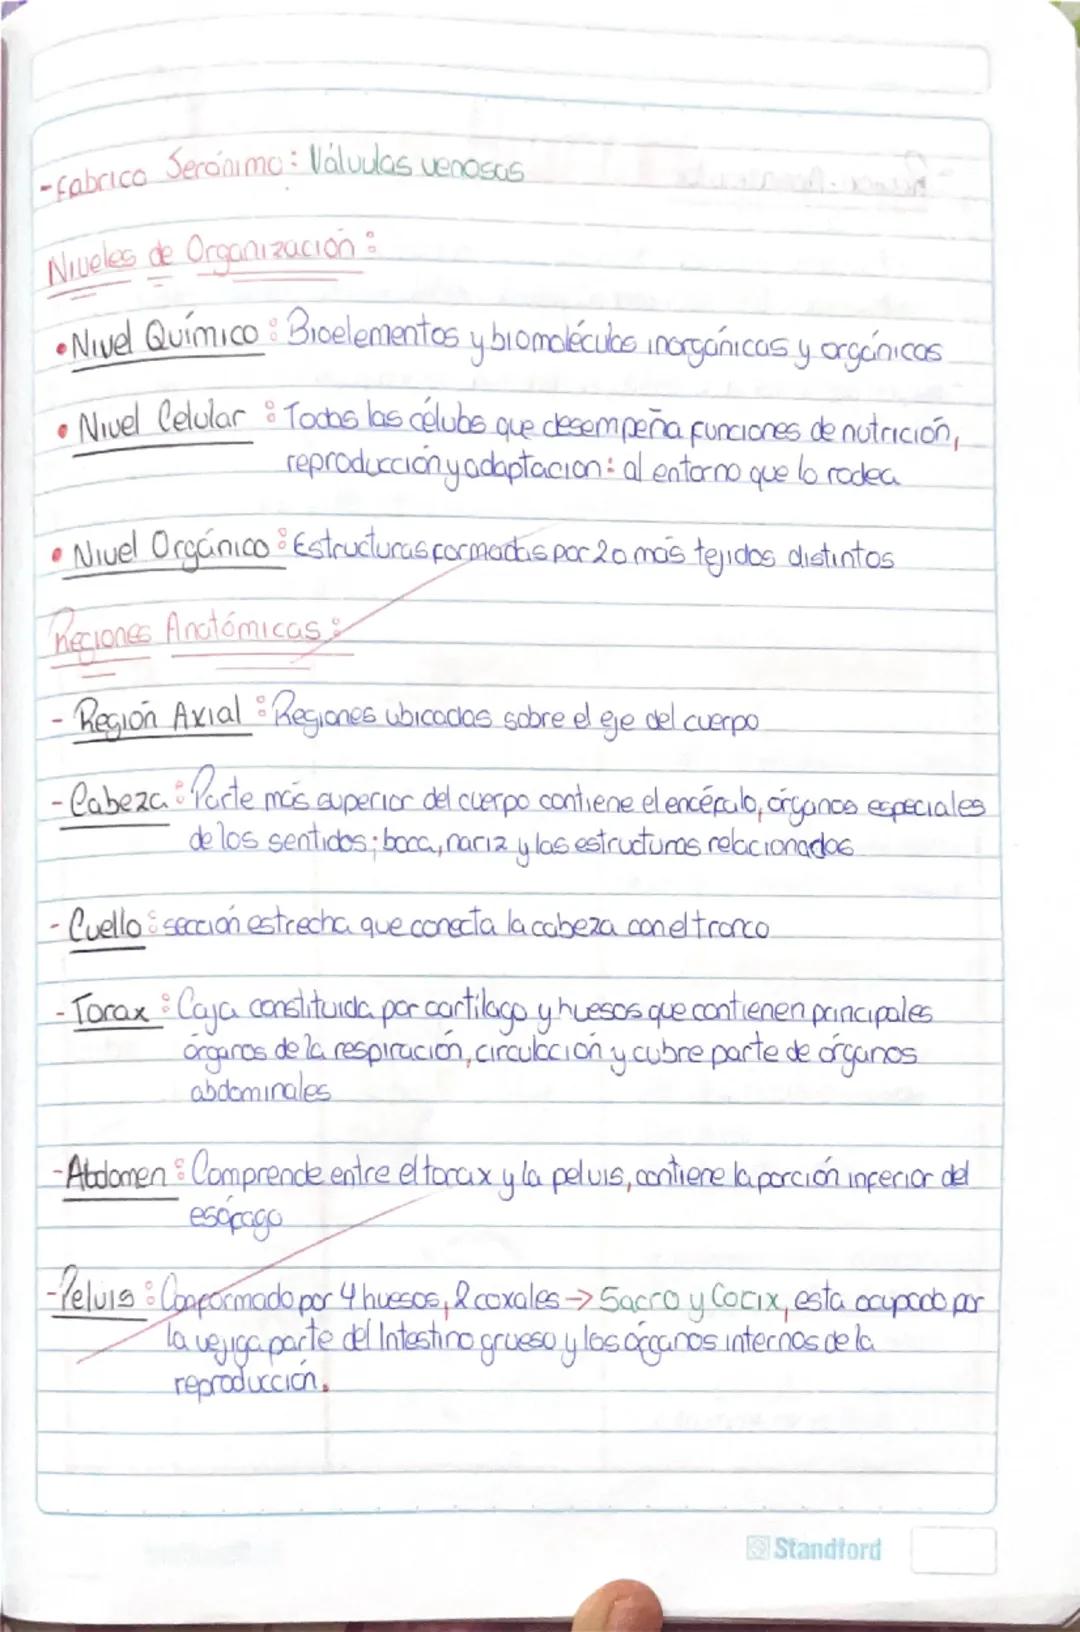 -fabrico Serónimo: Válvulas venosas
Niveles de Organización:
• Nivel Químico: Bioelementos y biomoléculas inorgánicas y orgánicas
• Nivel Celular: Todas las célubs que desempeña funciones de nutrición,
reproducción y adaptacion: al entorno que lo rodea
• Nivel Orgánico: Estructuras formadas por 2 o más tejidos distintos
Regiones Anatómicas:
- Región Axial: Regiones ubicadas sobre el eje del cuerpo
- Cabeza: Parte más superior del cuerpo contiene el encéfalo, órganos especiales
de los sentidos; boca, nariz y las estructuras relacionadas
- Cuello: sección estrecha que conecta la cabeza con el tronco
- Torax: Caja constituida por cartílago y huesos que contienen principales
órganos de la respiración, circulación y cubre parte de órganos
abdominales
- Abdomen: Comprende entre el torax y la pelvis, contiene la porción inferior del
esófago
- Pelvis: Conformado por 4 huesos, 2 coxales → Sacro y Cocix, esta ocupado por
la vejiga parte del Intestino grueso y los órganos internos de la
reproducción.
Standford